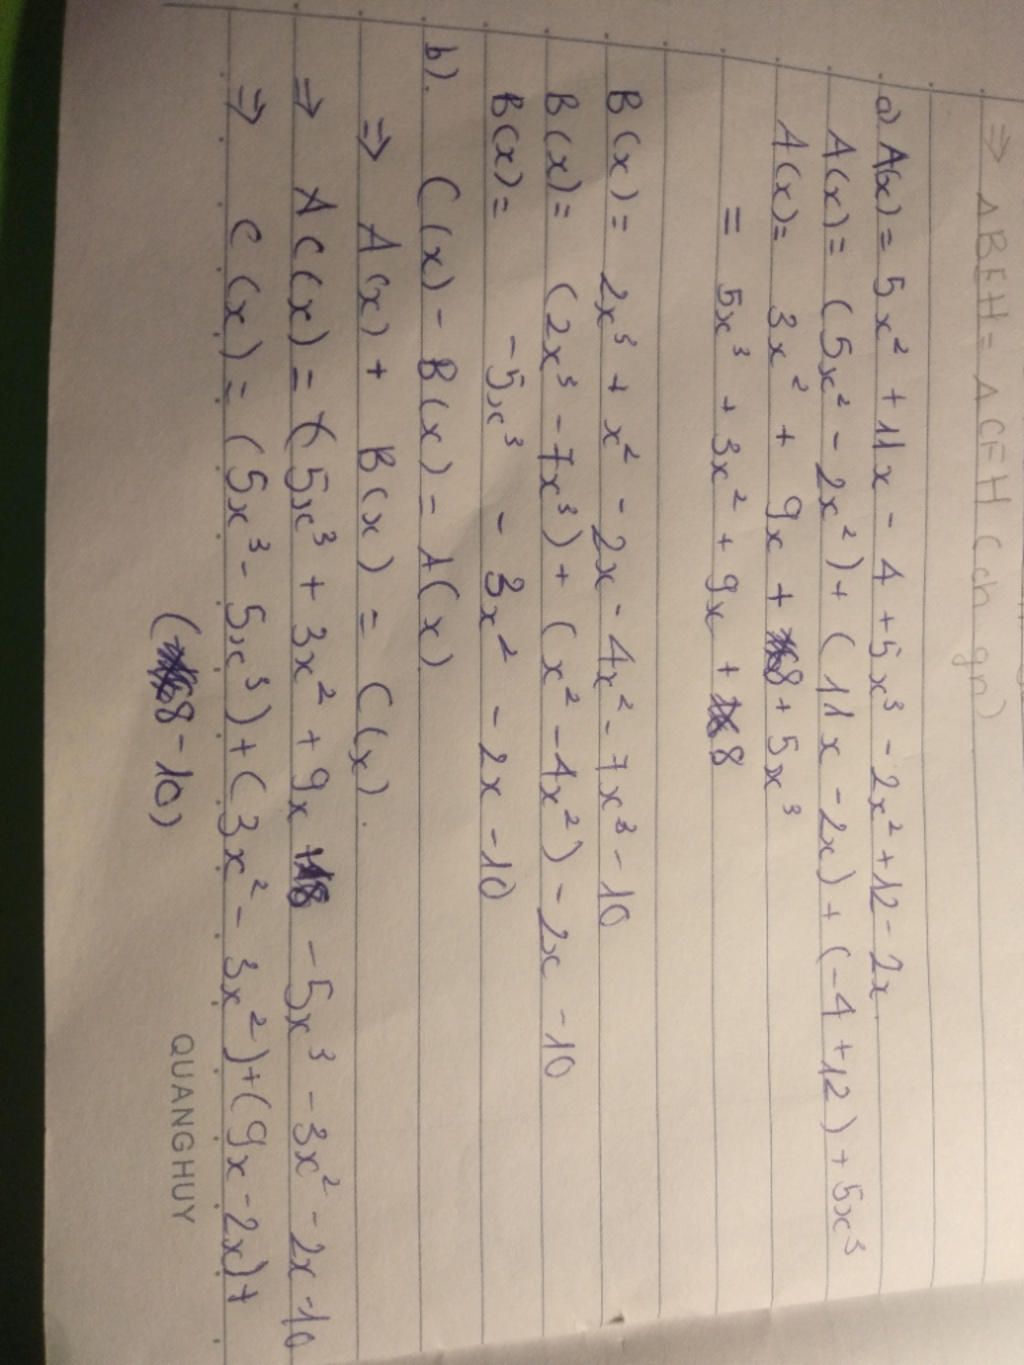 ⇒ ΔBEH = ΔCFH (ch gn)
a) A(x) = 5x² + 11x - 4 + 5x³ - 2x² + 12 - 2x
A(x) = (5x² - 2x²) + (11x - 2x) + (-4 + 12) + 5x³
A(x) = 3x² + 9x + 8 + 5x³
= 5x³ + 3x² + 9x + 8
B(x) = 2x³ + x² - 2x - 4x² - 7x³ - 10
B(x) = (2x³ - 7x³) + (x² - 4x²) - 2x - 10
B(x) = -5x³ - 3x² - 2x - 10
b). C(x) - B(x) = A(x)
⇒ A(x) + B(x) = C(x).
⇒ C(x) = 5x³ + 3x² + 9x + 8 - 5x³ - 3x² - 2x - 10
⇒ C(x) = (5x³ - 5x³) + (3x² - 3x²) + (9x - 2x) +
(8 - 10)
QUANGHUY